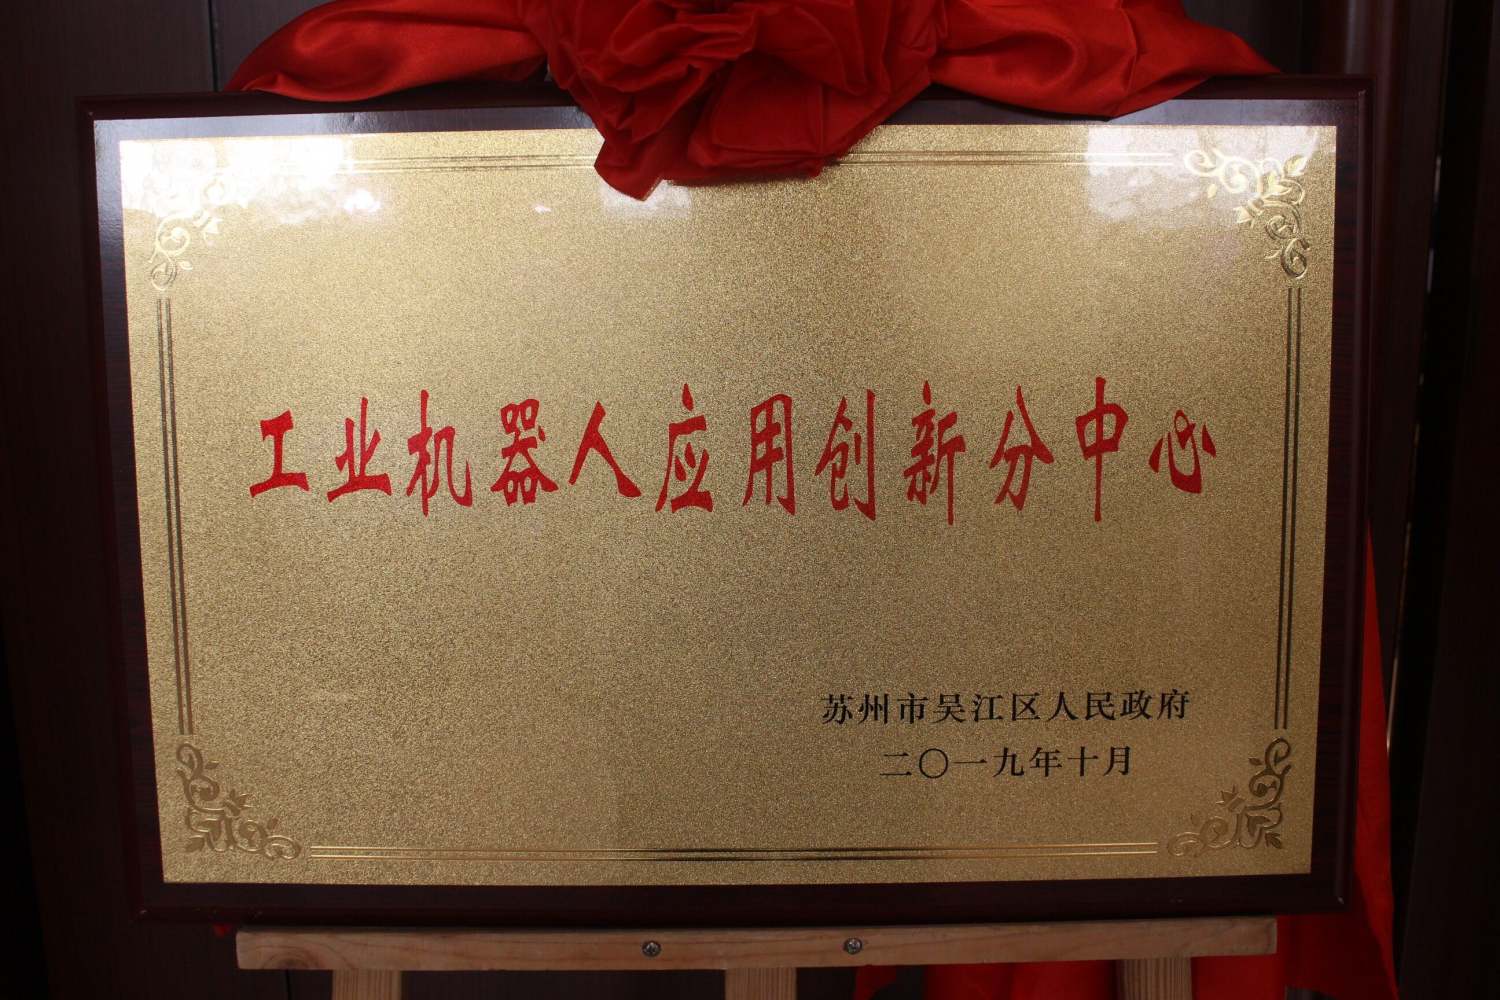 工业机器人应用创新分中心
苏州市吴江区人民政府
二〇一九年十月